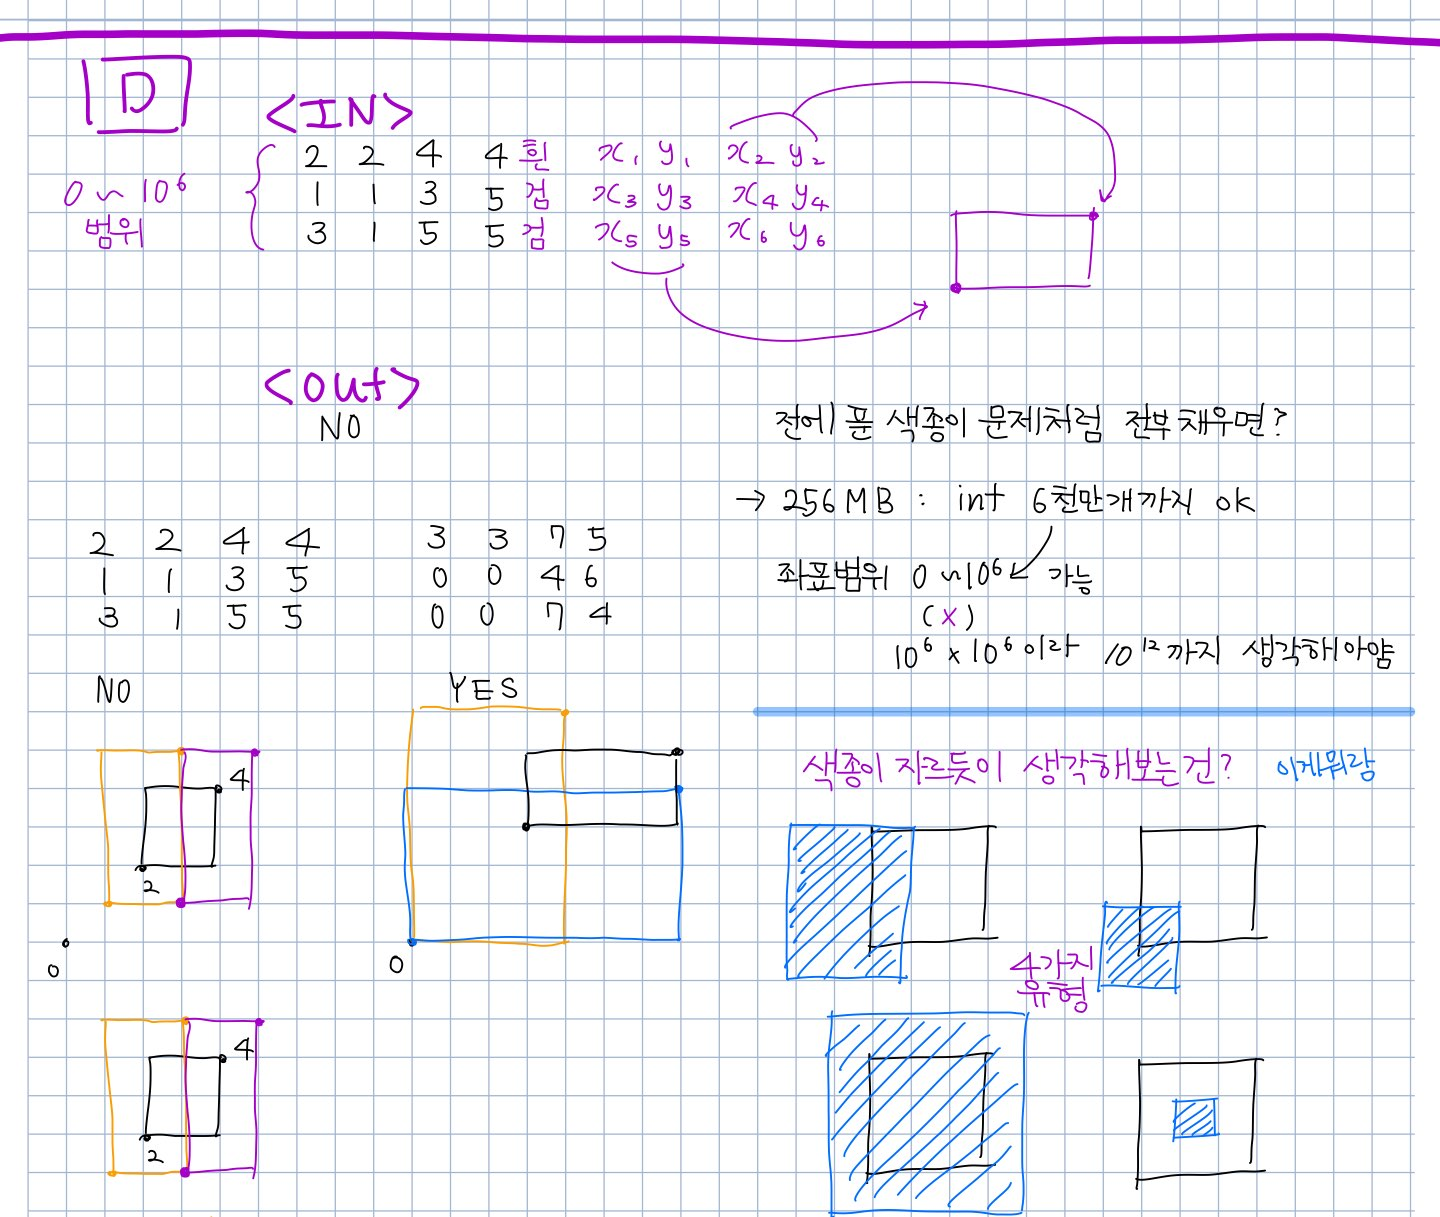 D
<IN>
2 2 4 4 흰 x₁ y₁ x₂ y₂
0 ~ 10⁶ 범위
1 1 3 5 검 x₃ y₃ x₄ y₄
3 1 5 5 검 x₅ y₅ x₆ y₆
<out>
NO
전에 푼 색종이 문제처럼 전부 채우면?
→ 256MB : int 6천만개까지 ok
좌표범위 0 ~ 10⁶ 가능
(x)
10⁶ x 10⁶ 이라 10¹² 까지 생각해야얌
2 2 4 4
1 1 3 5
3 1 5 5
NO
3 3 7 5
0 0 4 6
0 0 7 4
YES
4
2
0
0
색종이 자르듯이 생각해보는건? 이게뭐람
4가지
유형
4
2